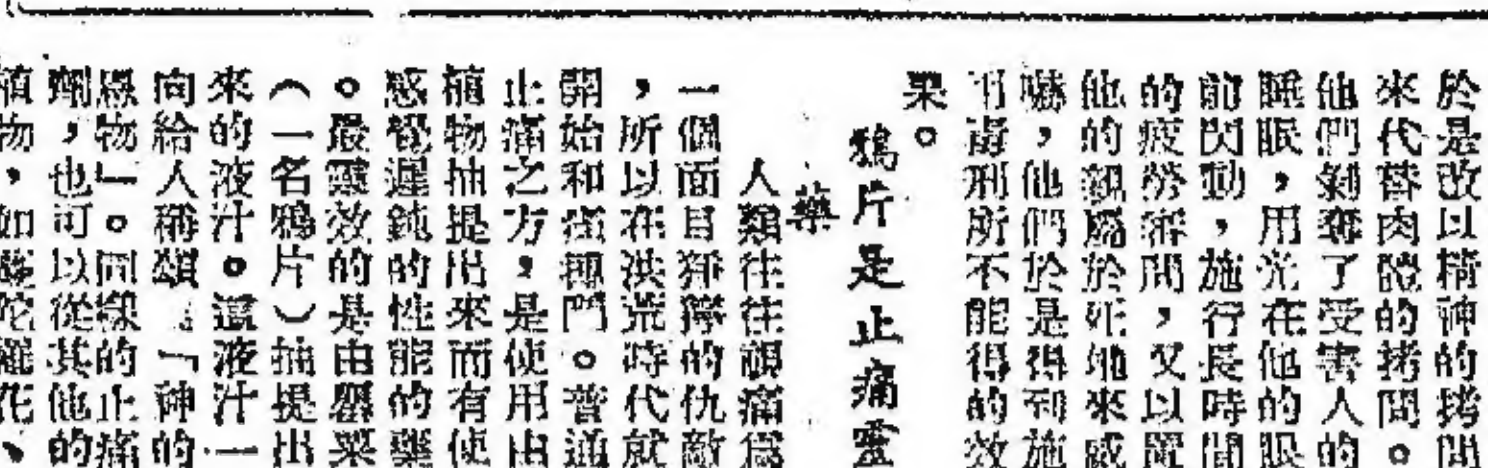 於是改以精神的拷問
來代替肉體的拷問。
他們剝奪了受害人的
睡眠,用光在他的眼
前閃動,施行長時間
的疲勞審問,又以置
他的親屬於死地來威
嚇,他們於是得到施
用毒刑所不能得的效
果。
鴉片是止痛靈
藥
人類往往視痛爲
一個面目猙獰的仇敵
,所以在洪荒時代就
開始和它搏鬥。普通
止痛之方,是使用由
植物抽提出來而有使
感覺遲鈍的性能的藥
。最靈效的是由罌粟
(一名鴉片)抽提出
來的液汁。這液汁一
向給人稱頌「神的
恩物」。同樣的止痛
劑,也可以從其他的
植物,如曼陀羅花、